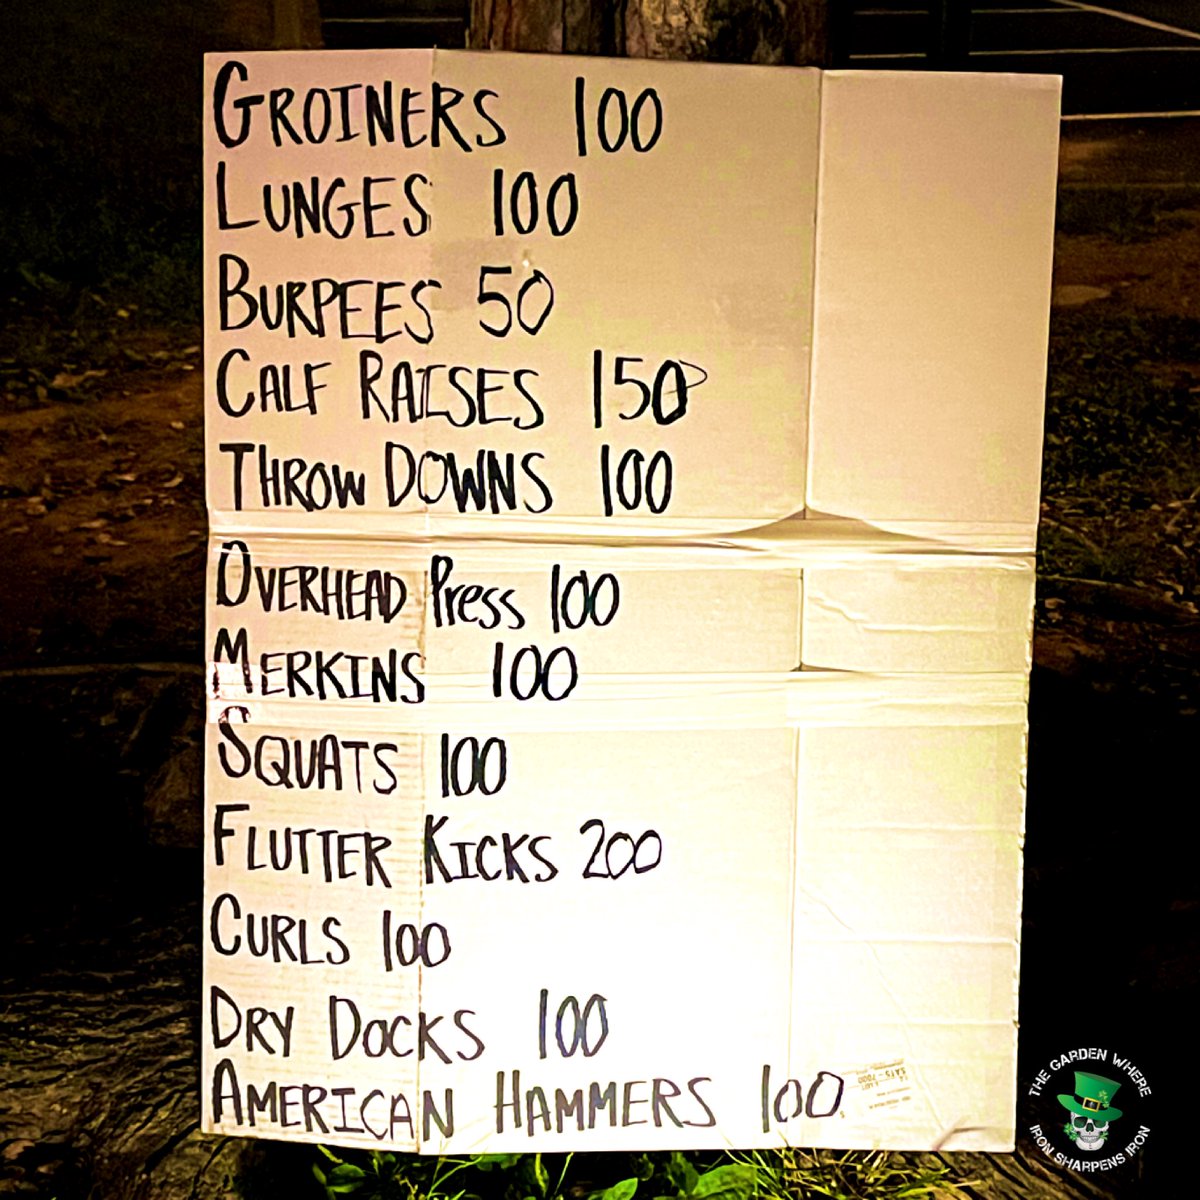 GROINERS 100
LUNGES 100
BURPEES 50
CALF RAISES 150
THROW DOWNS 100
OVERHEAD Press 100
MERKINS 100
SQUATS 100
FLUTTER KICKS 200
CURLS 100
DRY DOCKS 100
AMERICAN HAMMERS 100
THE GARDEN WHERE
IRON SHARPENS IRON